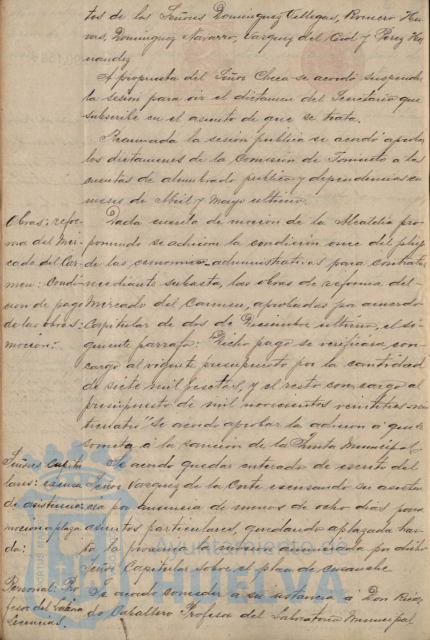 tos de los Señores Dominguez Villegas, Romero
Dominguez Navarro, Vazquez del Ciol y Perez
nandez
A propuesta del Señor Checa se acordó suspender
la sesión para oir el dictamen del Secretario que
subscribe en el asunto de que se trata.
Reanudada la sesión publica se acordó aprobar
los dictamenes de la Comisión de Fomento a las
cuentas de alumbrado publico y dependencias en
meses de Abril y Mayo ultimos.
Obras: refor- Dada cuenta de moción de la Alcaldia pro-
ma del Mer- poniendo se adicione la condición once del plieg
cado del Car- de las economico-administrativas para contratar
men: Condi- mediante subasta, las obras de reforma del
cion de pago Mercado del Carmen, aprobadas por acuerdo
de las obras: Capitular de dos de Diciembre ultimo, el si-
moción: guiente párrafo: "Dicho pago se verificará con
cargo al vigente presupuesto por la cantidad
de siete mil pesetas, y el resto con cargo al
presupuesto de mil novecientos veintitres-vein
ticuatro" Se acordó aprobar la adicion y que se
someta á la sanción de la Junta Municipal.
Señores Capitu Se acordó quedar enterado de escrito del
lares: excusa Señor Vazquez de la Corte excusando su asisten
de asistencia: cia por ausencia de menos de ocho dias para
moción aplaza asuntos particulares, quedando aplazada has-
da: ta la proxima la moción anunciada por dicho
Señor Capitular sobre el plan de ensanche
Personal: Pro Se acordó conceder a su instancia á Don
fesor del Labora do Caballero Profesor del Laboratorio Municipal
Licencias.
Ayuntamiento de
HUELVA